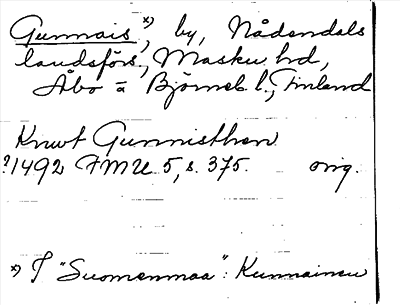 Gunnais *), by, Nådendals
landsförs., Masku hd,
Åbo o Björneb. l., Finland
Knut Gunnisthen
?1492 FMU 5, s. 375. orig.
*) I "Suomenmaa": Kunnainen